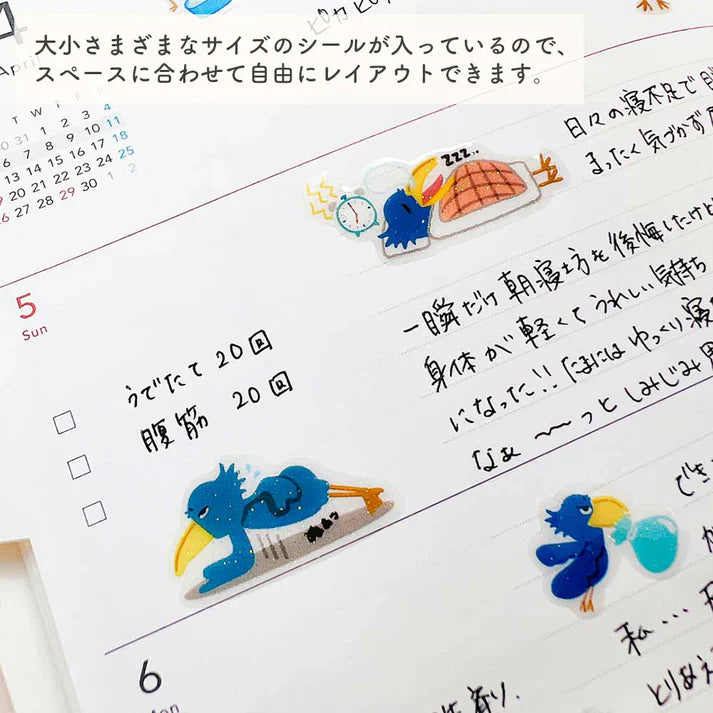 大小さまざまなサイズのシールが入っているので、
スペースに合わせて自由にレイアウトできます。
April
T W T F S
30 31 1 2 3 4
6 7 8 9 10 11
13 14 15 16 17 18
20 21 22 23 24 25
26 27 28 29 30 1 2
ピカピ
日々の寝不足で
まったく気づかず
ZZZ..
5
Sun
うでたて 20回
腹筋 20回
一瞬だけ朝寝坊を後悔したけど
身体が軽くてうれしい気持ち
になった!! たまにはゆっくり寝
なぁ〜〜っとしみじみ
でき
私...
とりあえ
6